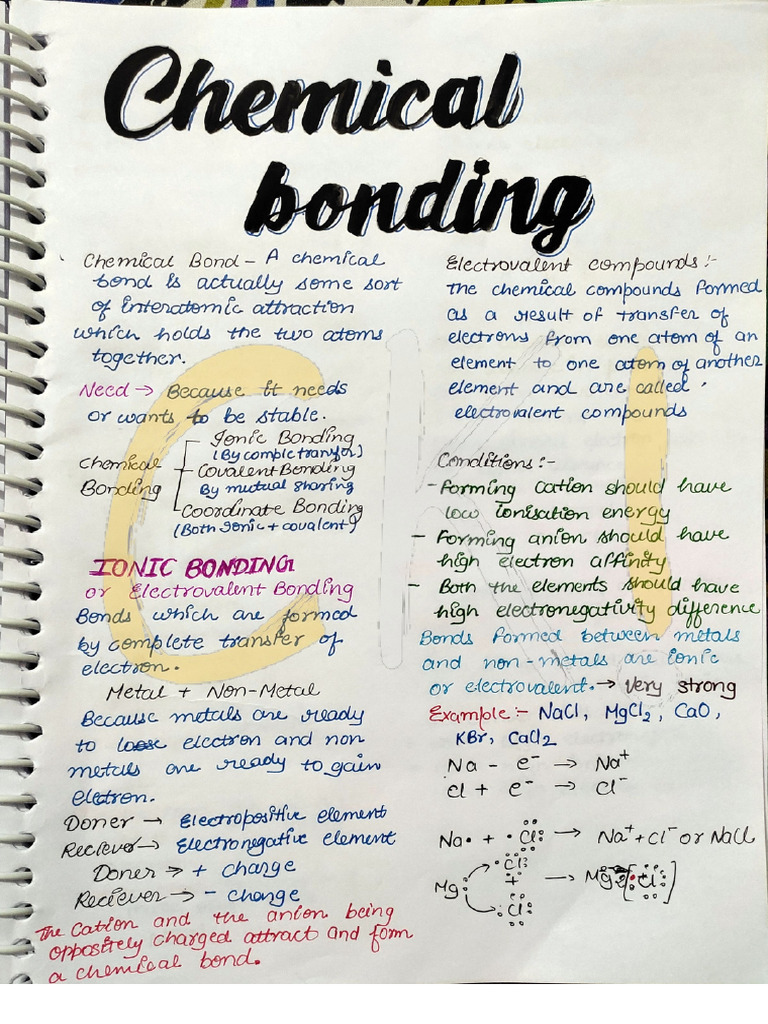 Chemical
bonding
Chemical Bond - A chemical
bond is actually some sort
of interatomic attraction
which holds the two atoms
together.
Need → Because it needs
or wants to be stable.
Chemical
Bonding
Ionic Bonding
(By complete transfer)
Covalent Bonding
By mutual sharing
Coordinate Bonding
(Both Ionic + covalent)
IONIC BONDING
or Electrovalent Bonding
Bonds which are formed
by complete transfer of
electron.
Metal + Non-Metal
Because metals are ready
to loose electron and non
metals are ready to gain
eletron.
Doner → Electropositive element
Reciever → Electronegative element
Doner → + charge
Reciever → - charge
The cation and the anion being
oppositely charged attract and form
a chemical bond.
Electrovalent compounds:-
The chemical compounds formed
as a result of transfer of
electrons from one atom of an
element to one atom of another
element and are called
electrovalent compounds
Conditions:-
- Forming cation should have
low ionisation energy
- Forming anion should have
high electron affinity
- Both the elements should have
high electronegativity difference
Bonds formed between metals
and non-metals are ionic
or electrovalent. → very strong
Example:- NaCl, MgCl₂, CaO,
KBr, CaCl₂
Na - e⁻ → Na⁺
Cl + e⁻ → Cl⁻
Na• + •Cl: → Na⁺ + Cl⁻ or NaCl
Cl:
Mg: + →
Cl: